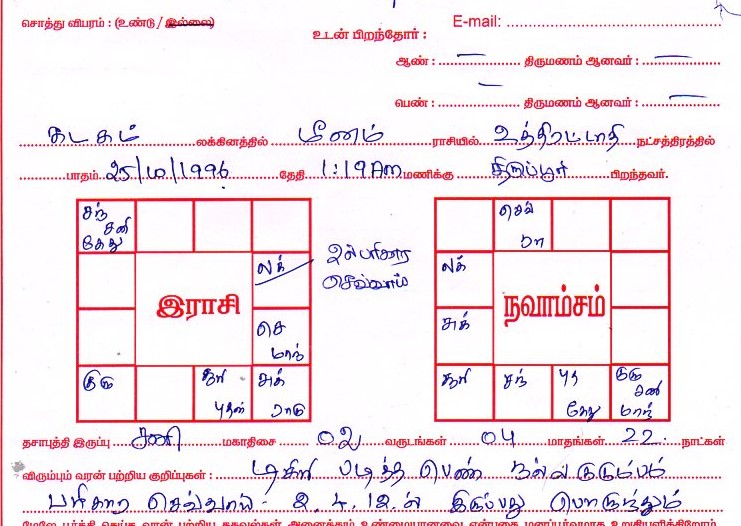 சொத்து விபரம் : (உண்டு / இல்லை)
E-mail:
உடன் பிறந்தோர் :
ஆண் : — திருமணம் ஆனவர் : —
பெண் : — திருமணம் ஆனவர் : —
கடகம் லக்கினத்தில் மீனம் ராசியில் உத்திரட்டாதி நட்சத்திரத்தில்
பாதம் 25/10/1996 தேதி 1:19 AM மணிக்கு திருப்பூர் பிறந்தவர்.
சந் சனி கேது
லக்
செ மாந்
குரு
சூரி புதன்
சுக் ராகு
இராசி
பரிகார செவ்வாய்
செவ் ரா
லக்
சுக்
சூரி
சந்
புத கேது
குரு சனி மாந்
நவாம்சம்
தசாபுத்தி இருப்பு சனி மகாதிசை 02 வருடங்கள் 04 மாதங்கள் 22 நாட்கள்
விரும்பும் வரன் பற்றிய குறிப்புகள் : டிகிரி படித்த பெண் நல்ல குடும்பம்
பரிகார செவ்வாய் - 2.4.12.ல் இருப்பது பொருந்தும்
மேலே பூர்த்தி செய்த வரன் பற்றிய தகவல்கள் அனைத்தும் உண்மையானவை என்பதை மனப்பூர்வமாக உறுதியளிக்கிறோம்